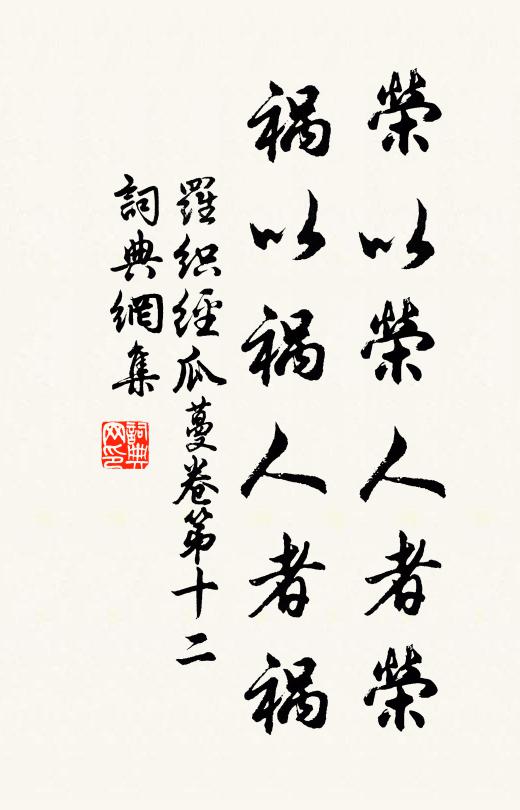 榮以榮人者榮
禍以禍人者禍
羅織經瓜蔓卷第十二
詞典網集
詞典网印